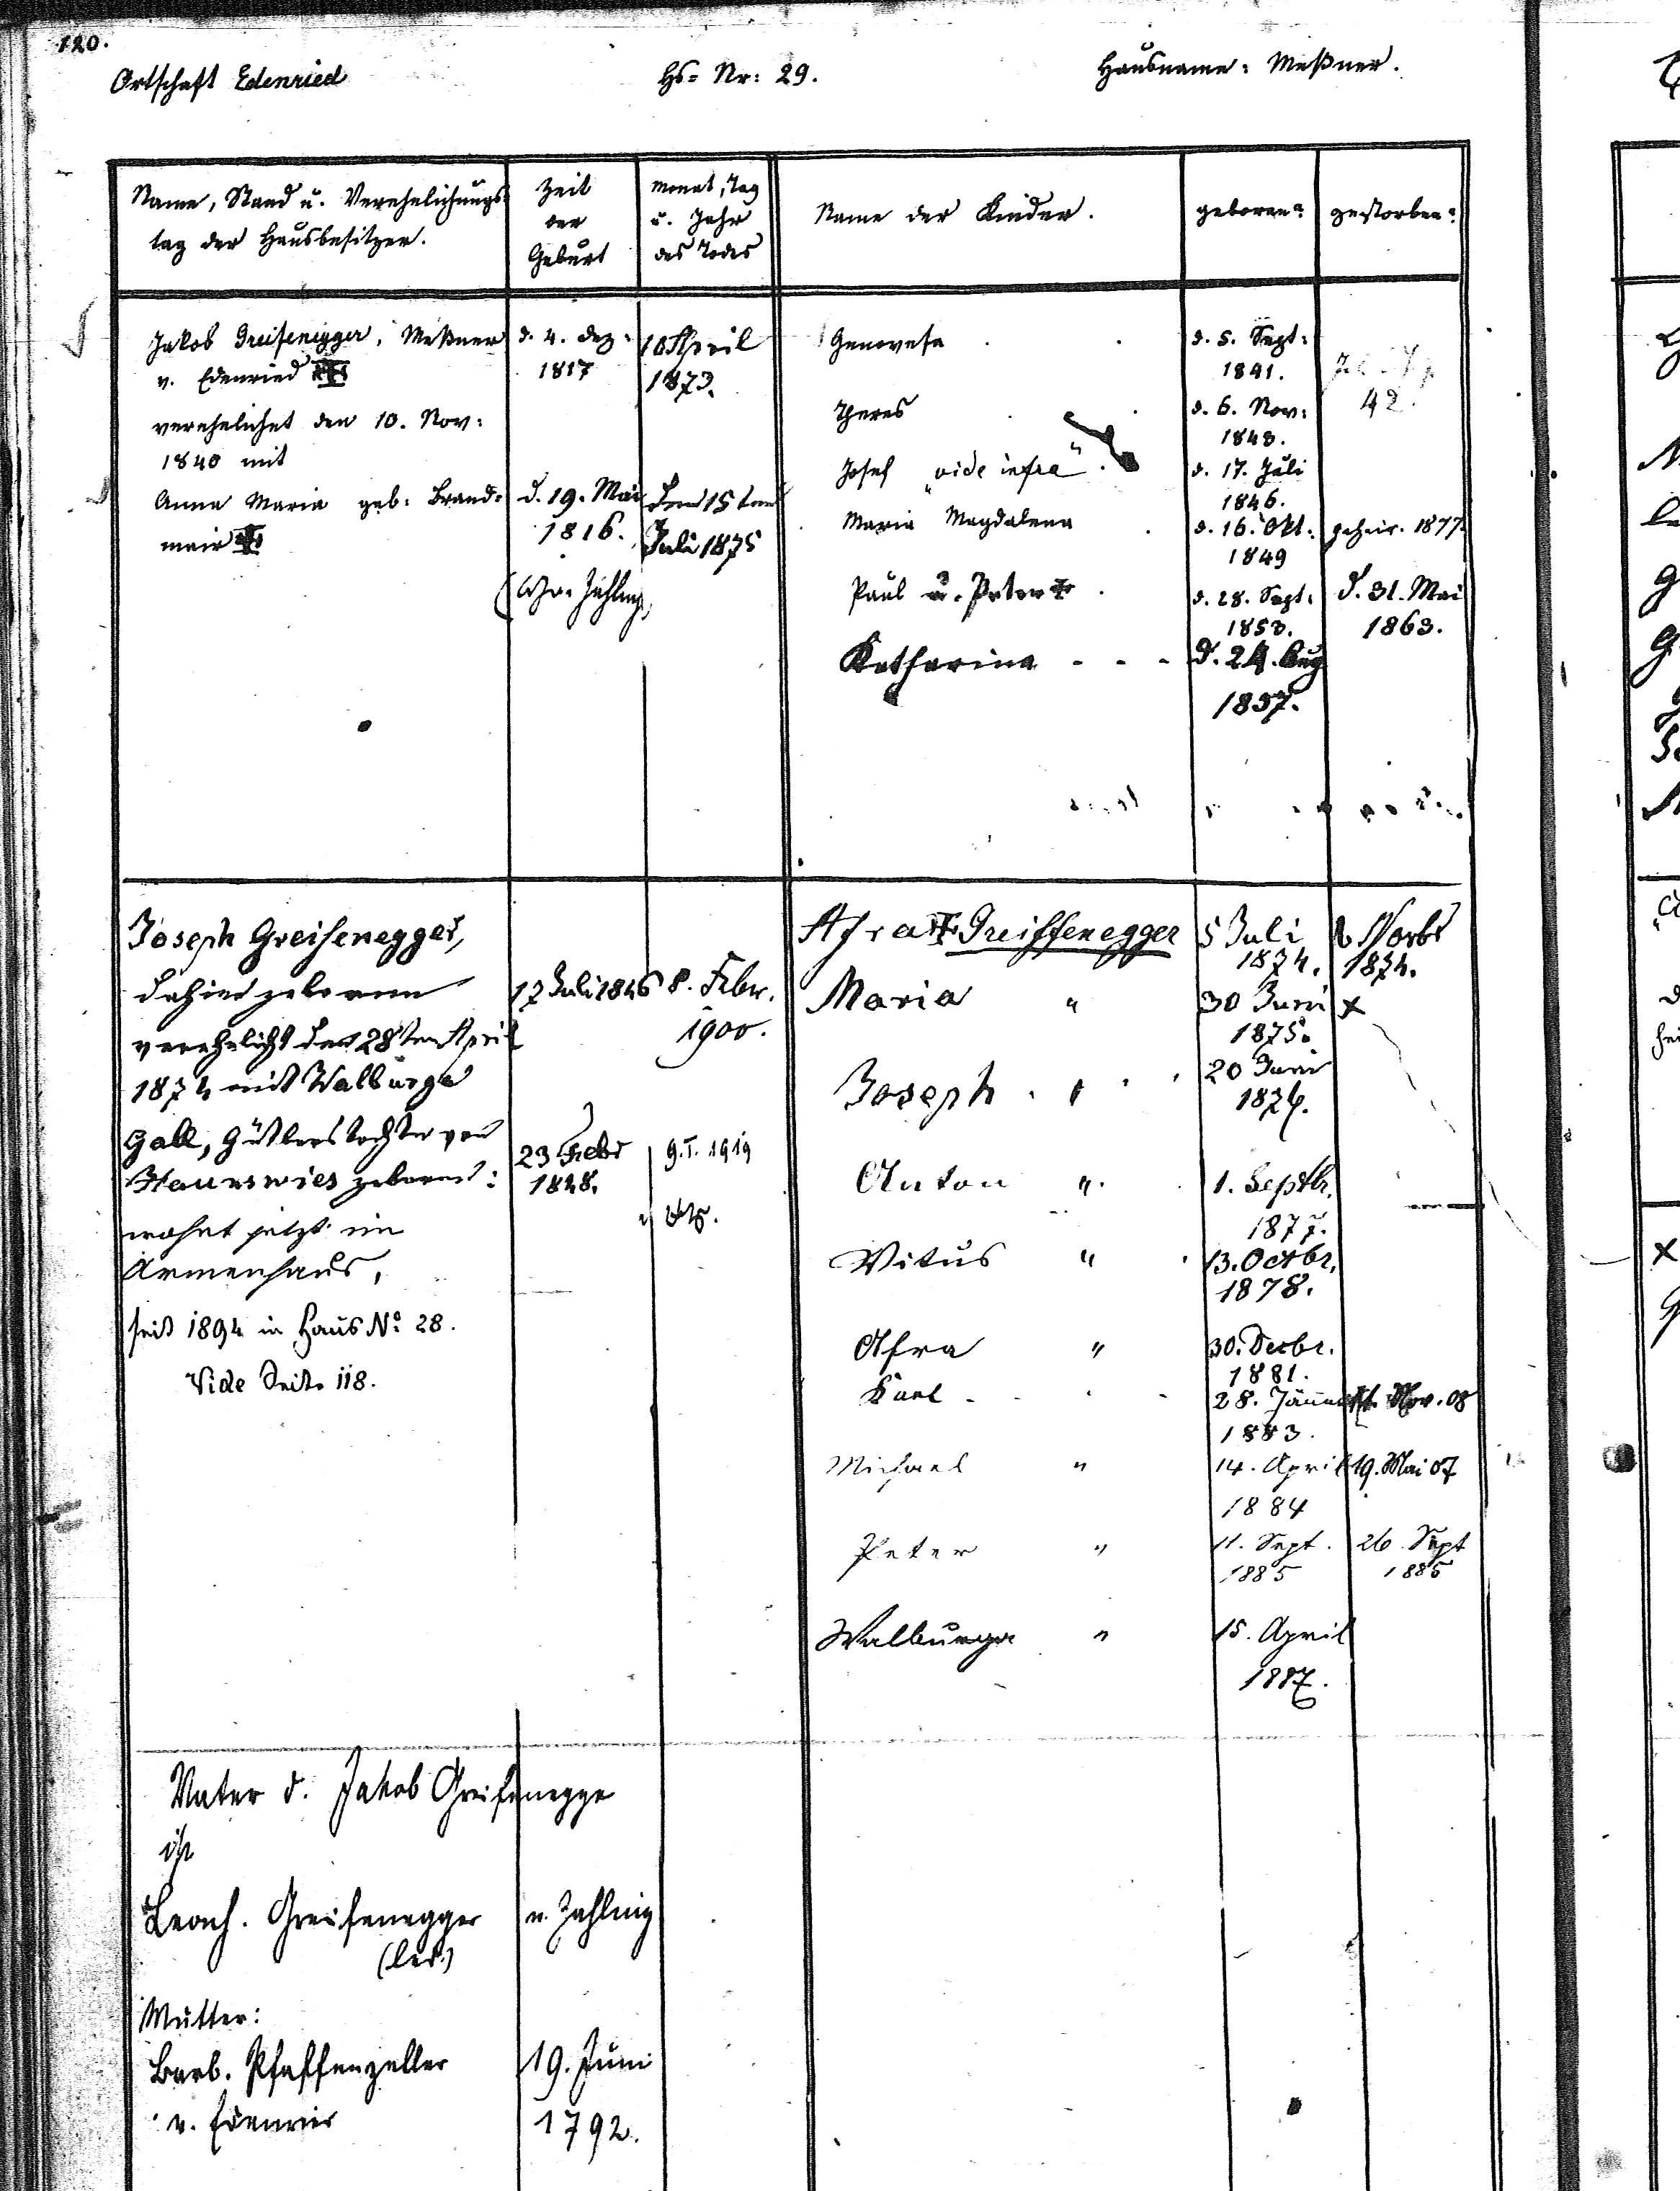 120.
Ortschaft Edenried Hs= Nr: 29. Hausname: Meßner.
Name, Stand u. Verehelichungs=
tag der Hausbesitzer.
Zeit
der
Geburt
Monat, Tag
u. Jahr
des Todes
Name der Kinder.
geboren:
gestorben:
Jakob Greifenegger, Meßner d. 4. Dez: 10 April
v. Edenried 1817 1873.
verehelichet den 10. Nov:
1840 mit
Anna Maria geb: Brand= d. 19. Mai Den 15ten
mair 1816. Juli 1875
Genovefa d. 5. Sept:
1841.
Theres d. 6. Nov: 42.
1843.
Josef "vide infra" d. 17. Juli
1846.
Maria Magdalena d. 16. Okt: geheir. 1877.
1849
Paul u. Peter d. 28. Sept: d. 31. Mai
1853. 1863.
Katharina - - - d. 24. Aug
1857.
Joseph Greifenegger,
dahier geboren 17 Juli 1846 8. Febr.
verehelicht den 28ten April 1900.
1874 mit Walburga
Gall, Gütlerstochter von 23 Febr 9. I. 1919
Haunswies geboren: 1848.
wohnt jetzt im
Armenhaus,
seit 1894 in Haus No. 28.
Vide Seite 118.
Afra Greiffenegger 5 Juli Novbr
1874. 1874.
Maria " 30 Juni x
1875.
Joseph " 20 Juni
1876.
Anton " 1. Septbr.
1877.
Vitus " 13. Octbr.
1878.
Afra " 30. Decbr.
1881.
Karl - 28. Nov. 08
1883.
Michael " 14. April 19. Mai 07
1884
Peter " 11. Sept. 26. Sept
1885 1885
Walburga " 15. April
1887.
Vater d. Jakob Greifenegge
ist
Leonh. Greifenegger v. Zahling
(led.)
Mutter:
Barb. Pfaffenzeller 19. Juni
v. Edenried 1792.